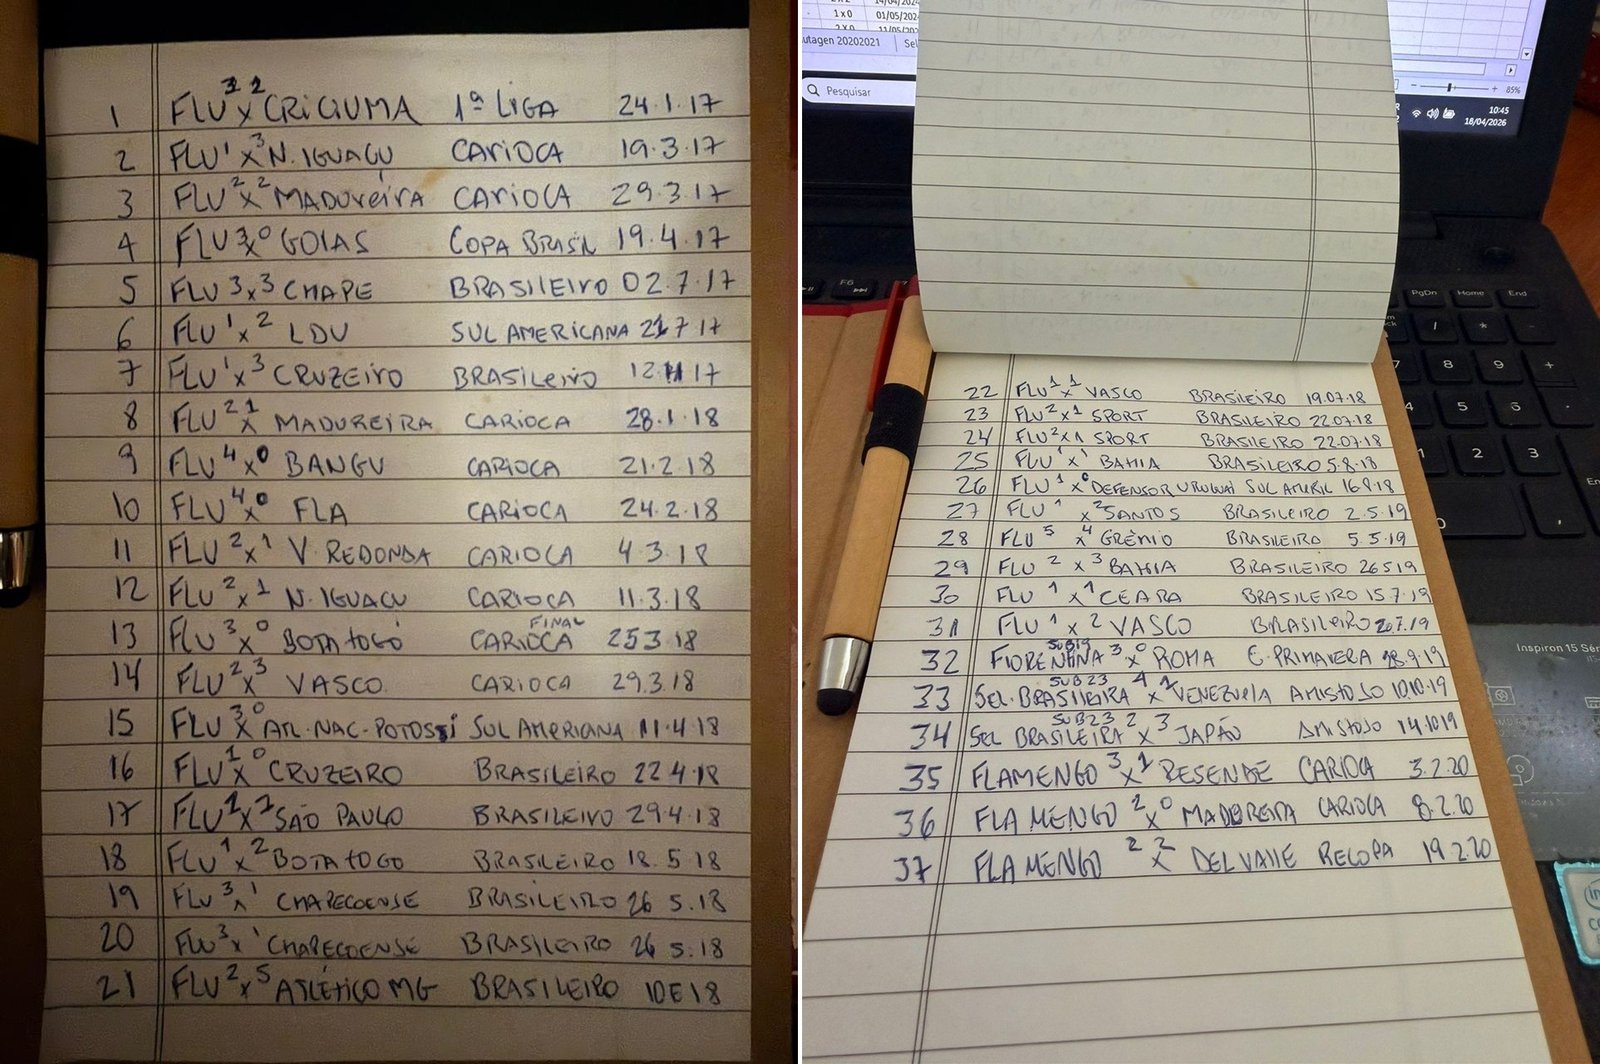 1 FLU 3 x 2 CRICIUMA 1ª LIGA 24.1.17
2 FLU 1 x 3 N. IGUAÇU CARIOCA 19.3.17
3 FLU 2 x 2 MADUREIRA CARIOCA 29.3.17
4 FLU 3 x 0 GOIAS COPA BRASIL 19.4.17
5 FLU 3 x 3 CHAPE BRASILEIRO 02.7.17
6 FLU 1 x 2 LDU SUL AMERICANA 7 17
7 FLU 1 x 3 CRUZEIRO BRASILEIRO 12 11 17
8 FLU 2 x 1 MADUREIRA CARIOCA 28.1.18
9 FLU 4 x 0 BANGU CARIOCA 21.2.18
10 FLU 4 x 0 FLA CARIOCA 24.2.18
11 FLU 2 x 1 V. REDONDA CARIOCA 4.3.18
12 FLU 2 x 1 N. IGUAÇU CARIOCA 11.3.18
13 FLU 3 x 0 BOTAFOGO CARIOCA FINAL 253.18
14 FLU 2 x 3 VASCO CARIOCA 29.3.18
15 FLU 3 x 0 ATL. NAC. POTOSSÍ SUL AMERICANA 11.4.18
16 FLU 1 x 0 CRUZEIRO BRASILEIRO 22.4.18
17 FLU 1 x 1 SÃO PAULO BRASILEIRO 29.4.18
18 FLU 1 x 2 BOTAFOGO BRASILEIRO 18.5.18
19 FLU 3 x 1 CHAPECOENSE BRASILEIRO 26 5.18
20 FLU 3 x 1 CHAPECOENSE BRASILEIRO 26 5.18
21 FLU 2 x 5 ATLÉTICO MG BRASILEIRO 18
22 FLU 1 x 1 VASCO BRASILEIRO 19.07.18
23 FLU 2 x 1 SPORT BRASILEIRO 22.07.18
24 FLU 2 x 1 SPORT BRASILEIRO 22.07.18
25 FLU 1 x 1 BAHIA BRASILEIRO 5.8.18
26 FLU 1 x 0 DEFENSOR URUGUAI SUL AMERIC 16.8.18
27 FLU 1 x 2 SANTOS BRASILEIRO 2.5.19
28 FLU 5 x 4 GRÊMIO BRASILEIRO 5.5.19
29 FLU 2 x 3 BAHIA BRASILEIRO 26519
30 FLU 1 x 1 CEARA BRASILEIRO 15.7.19
31 FLU 1 x 2 VASCO BRASILEIRO 207.19
32 FIORENTINA SUB19 3 x 0 ROMA C. PRIMAVERA 28.9.19
33 SEL. BRASILEIRA SUB23 4 x 1 VENEZUELA AMISTOSO 10.10.19
34 SEL BRASILEIRA SUB23 2 x 3 JAPÃO AMISTOSO 14.1019
35 FLAMENGO 3 x 1 RESENDE CARIOCA 3.2.20
36 FLAMENGO 2 x 0 MADUREIRA CARIOCA 8.2.20
37 FLAMENGO 2 x 2 DEL VALLE RECOPA 19.2.20
1 x 0 01/05/202
utagen 20202021
Pesquisar
85%
10:45
18/04/2026
F6
PgDn Home End
1 * -
7 8 9 +
4 5 6
1 2 3
0 ,
Inspiron 15